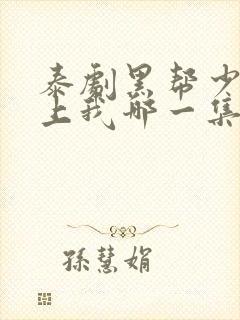 泰劇黑帮少
上我哪一集
孫慧娟